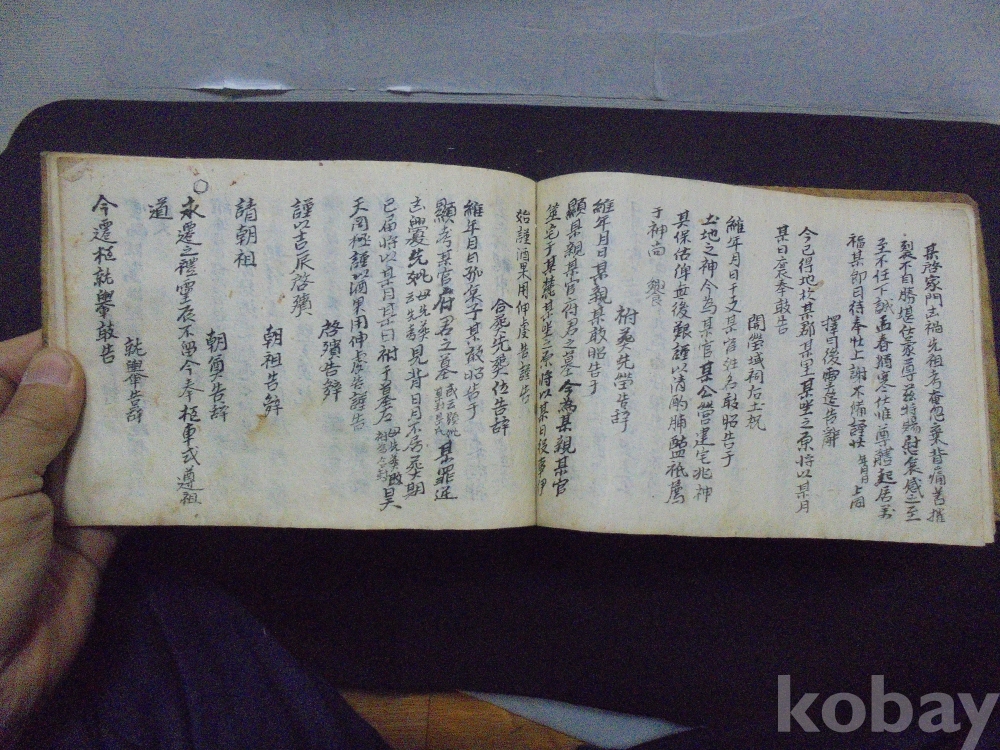 某啓家門凶禍先祖考奄忽棄背痛苦摧
裂不自勝堪仕蒙尊玆特賜慰哀感之至
至不任下誠孟春猶寒仕惟尊體起居万
福某卽日侍奉仕上謝不備謹狀 年月日 上同
擇日後靈筵告辭
今已得地於某郡某里某坐之原將以某月
某日襄奉敢告
開塋域祠后土祝
維年月日干支某官姓名敢昭告于
土地之神今爲某官某公營建宅兆神
其保佑俾無後艱謹以清酌脯醢祗薦
于神尙 饗
祔葬先塋告辞
維年月日某親某敢昭告于
顯某親某官府君之墓今爲某親某官
營宅于某麓某坐之原將以某日後事伊
始謹酒果用伸虔告謹告
合葬先葬位告辞
維年月日孤哀子某敢昭告于
顯考某官府君之墓 某罪逆
凶釁先妣 見背日月不居葬期
已屆將以某月某日祔于墓左 昊
天罔極謹以酒果用伸虔告謹告
啓殯告辤
謹以吉辰啓殯
朝祖告辤
請朝祖
朝奠告辞
永遷之禮靈辰不留今奉柩車式遵祖
道
就轝告辞
今遷柩就轝敢告
kobay